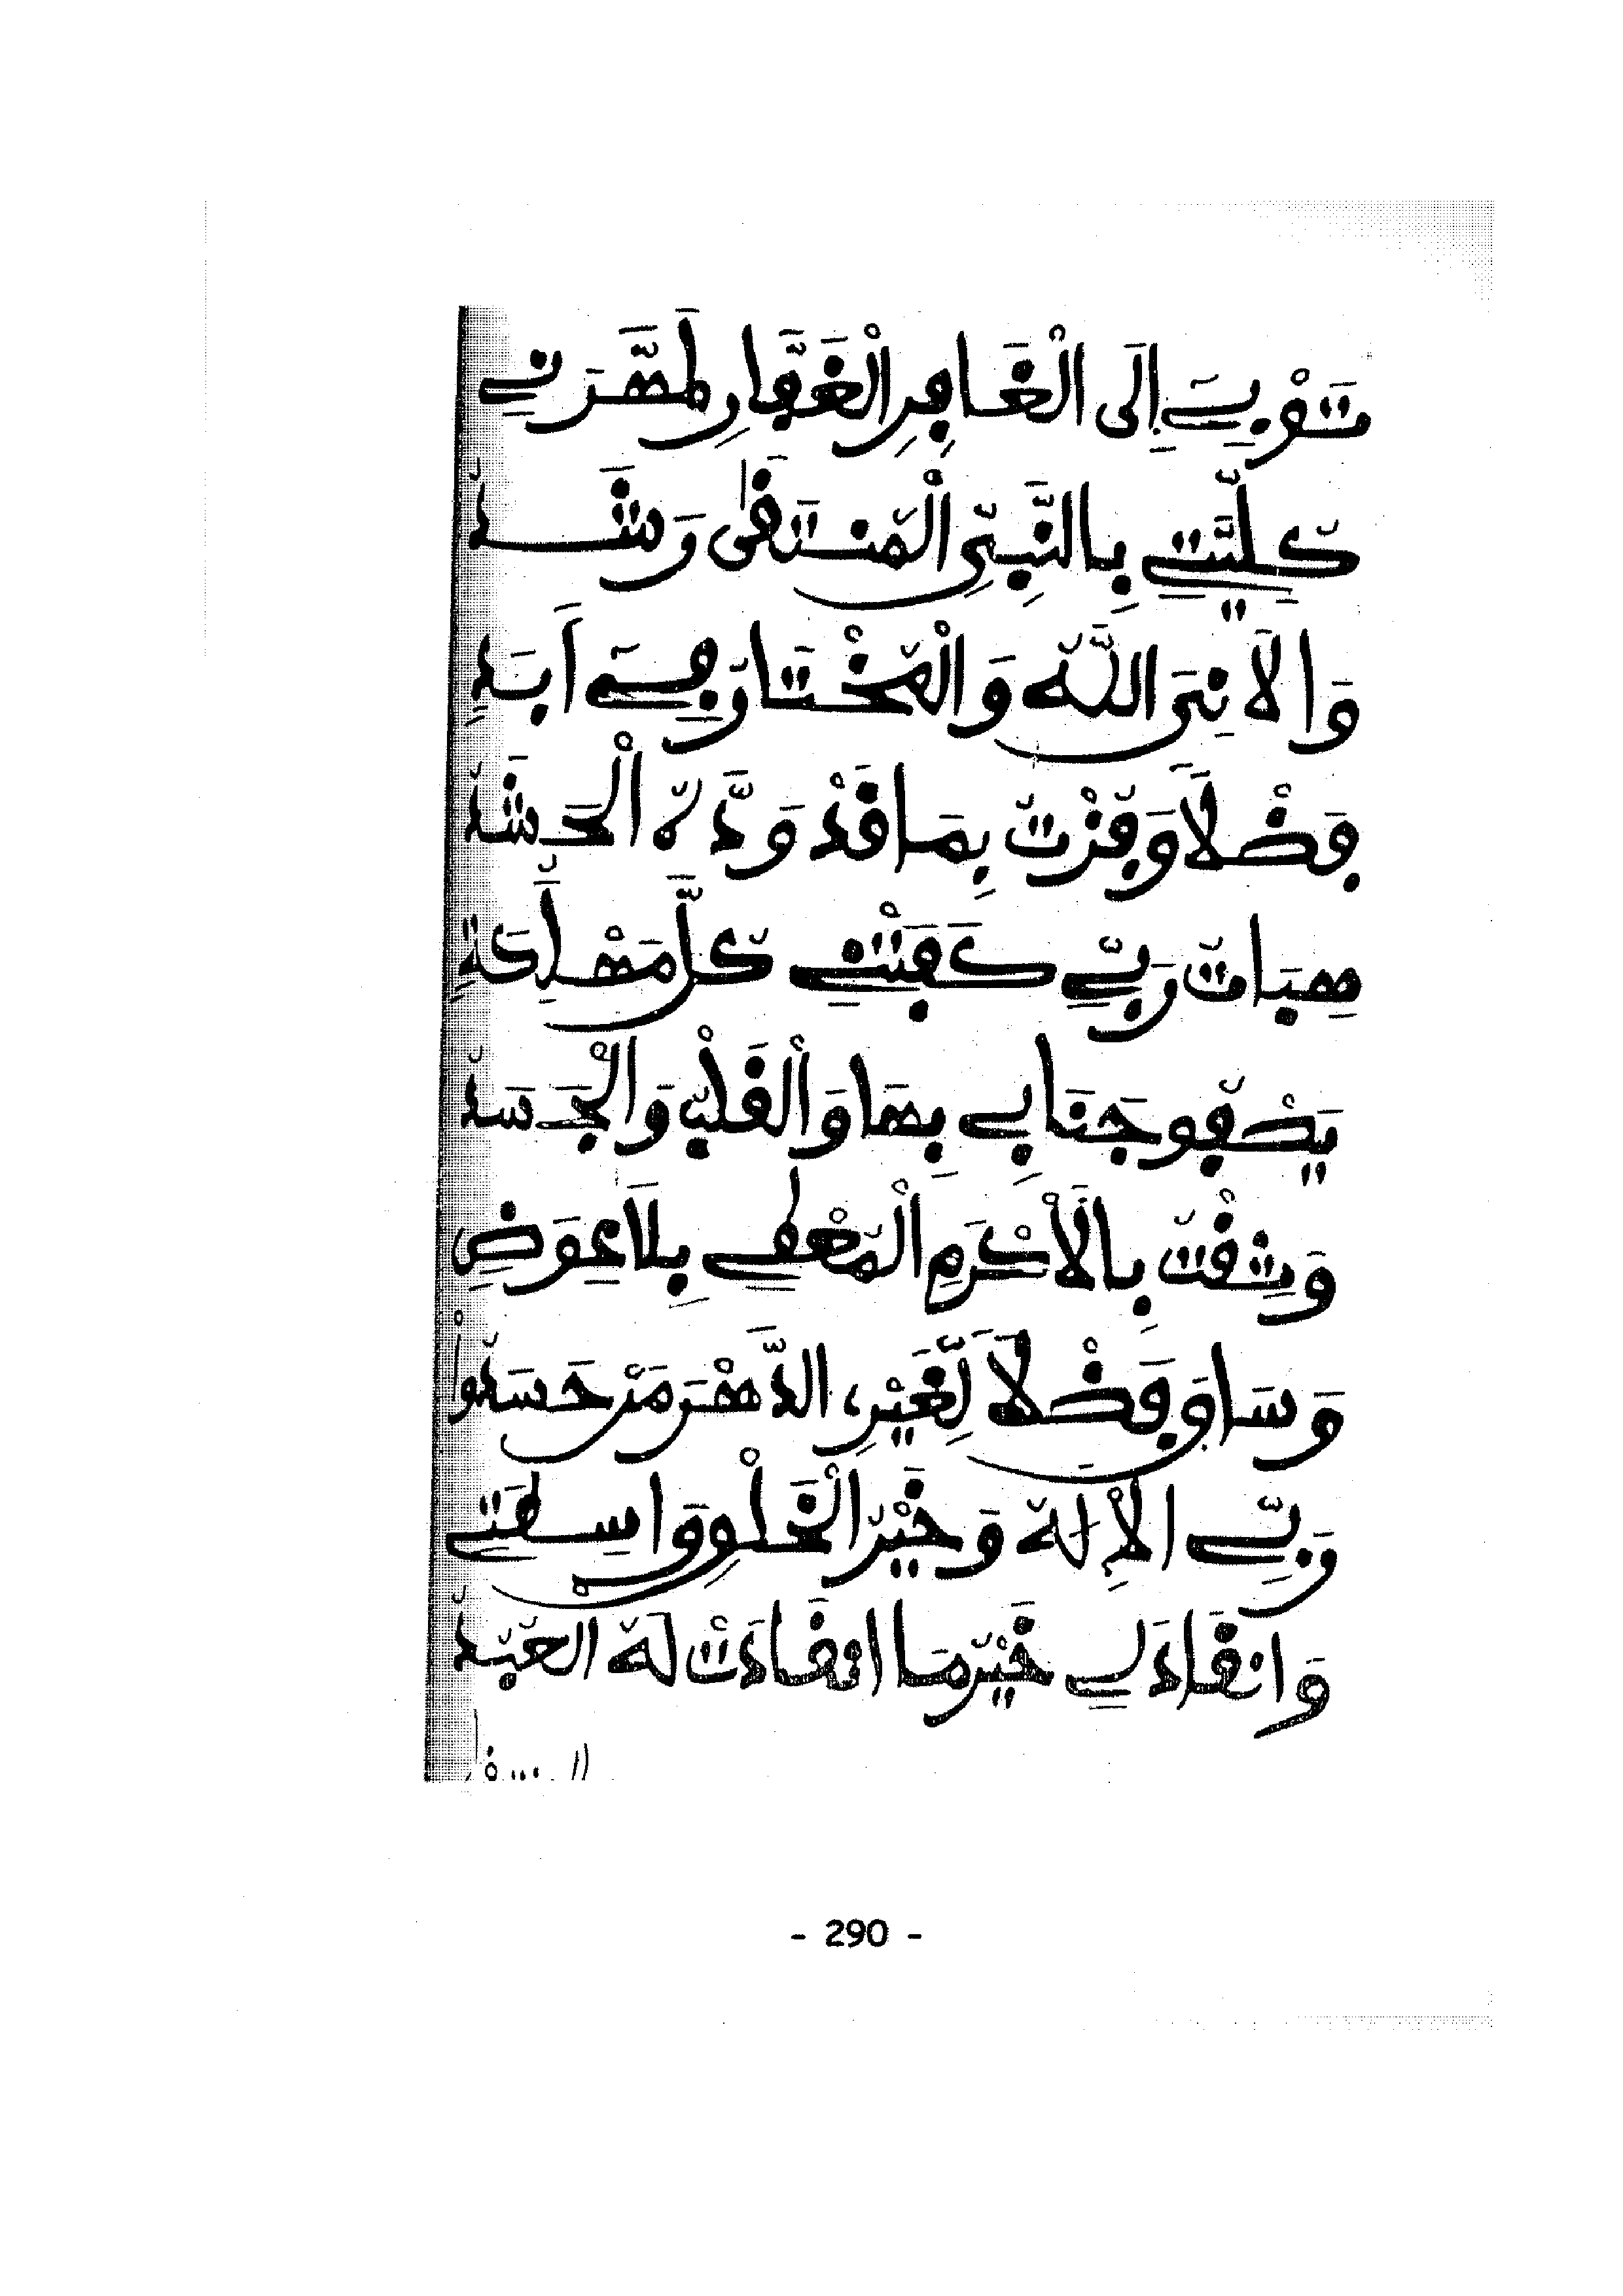 تَوْبِيَ إِلَى الْغَافِرِ الْغَفَّارِ طَهَّرَنِي
كُلِّيَّتِي بِالنَّبِيِّ الْمُنتَقَى وَشَدُ
وَالَانِيَ اللَّهُ وَالْمُخْتَارُ فِي أَبَدِ
فَضْلًا وَفُزْتُ بِمَا قَدْ وَدَّهُ الْحُشَدُ
هِبَاتُ رَبِّي كَفَتْنِي كُلَّ مَهْلَكَةٍ
يَصْفُو جَنَابِي بِهَا وَالْقَلْبُ وَالْجَسَدُ
وَثِقْتُ بِالْأَكْرَمِ الْمُعْطِي بِلَا عِوَضٍ
وَسَاقَ فَضْلًا لِغَيْرِي الدَّهْرَ مَنْ حَسَدُوا
رَبِّي الْإِلَهُ وَخَيْرُ الْخَلْقِ وَاسِطَتِي
وَانْقَادَ لِي خَيْرُ مَا انْقَادَتْ لَهُ الْعُبُدُ
- 290 -